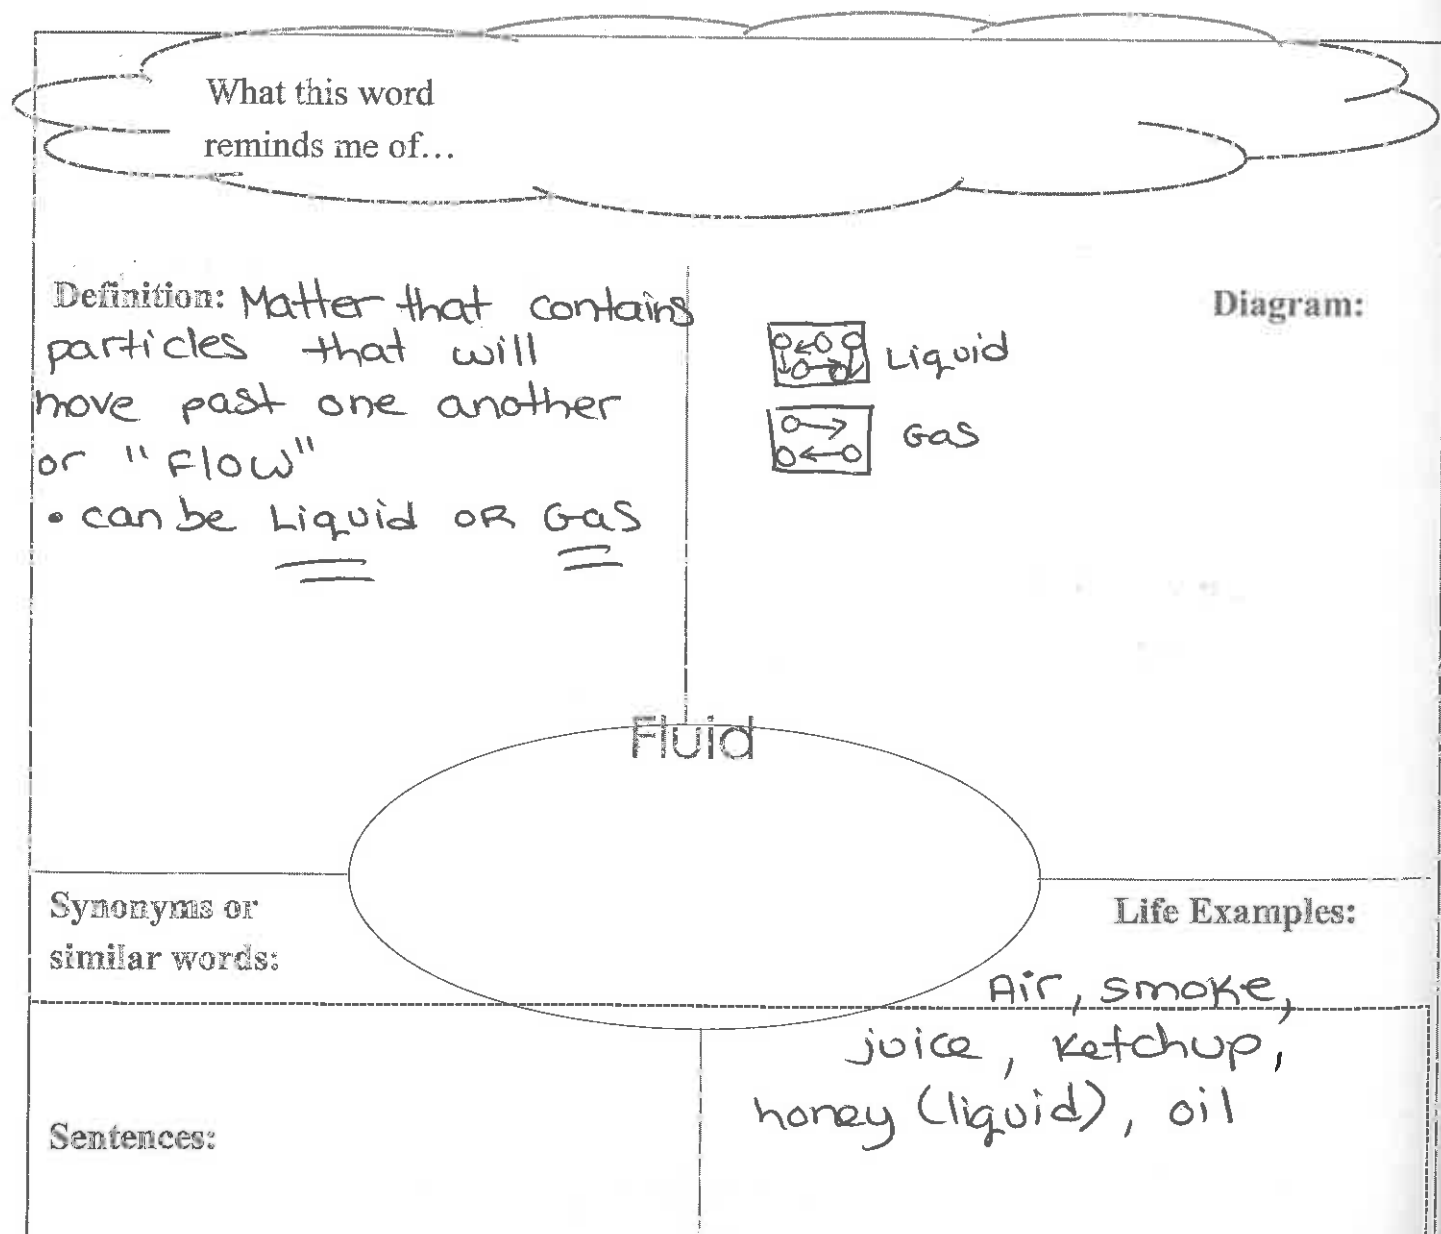 What this word
reminds me of...
Definition: Matter that contains
particles that will
move past one another
or "Flow"
• can be Liquid OR Gas
Diagram:
Liquid
Gas
Fluid
Synonyms or
similar words:
Life Examples:
Air, smoke,
juice, ketchup,
honey (liquid), oil
Sentences: